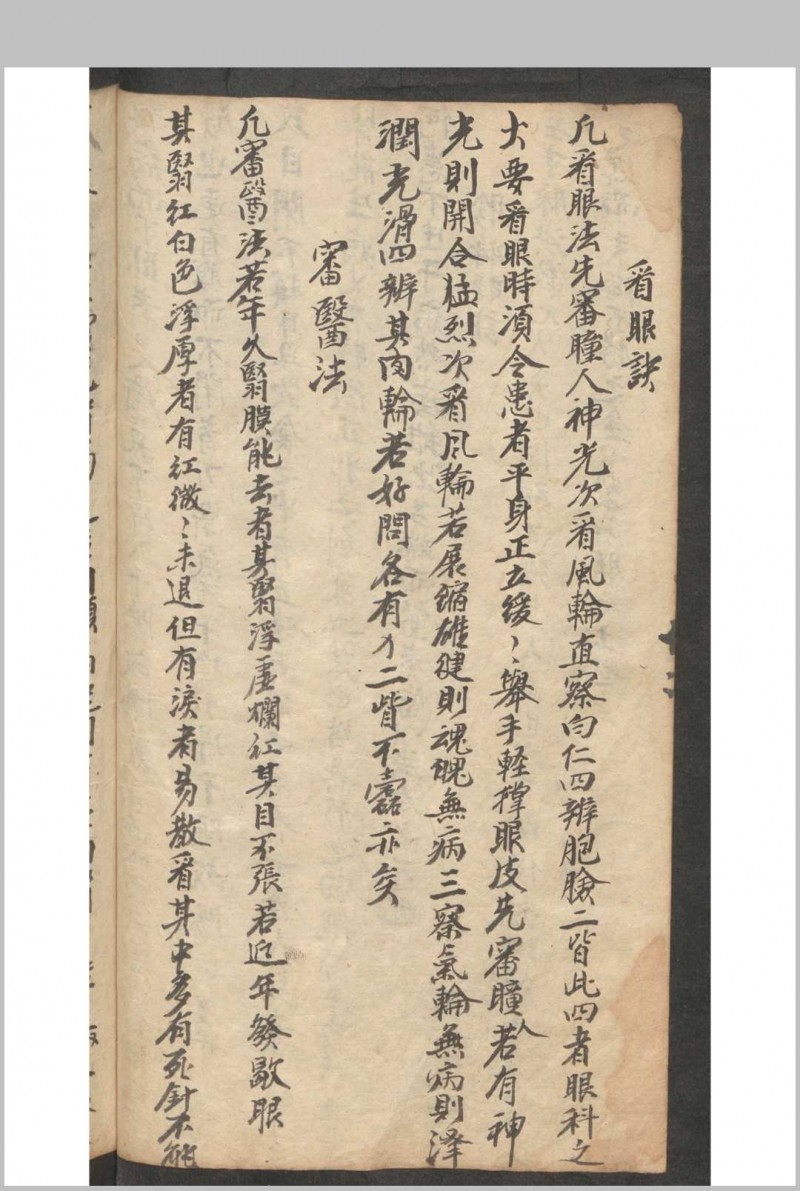 看眼訣
凡看眼法先審瞳人神光次看風輪直察白仁四辨胞臉二皆此四者眼科之
大要看眼時須令患者平身正立緩〻舉手軽撑眼皮先審瞳人若有神
光則開令猛烈次看風輪若展縮雄健則魂魄無病三察氣輪無病則澤
潤光滑四辨其肉輪若好問各有二皆不蠹亦矣
審醫法
凡審醫法若年久翳膜能去者其翳浮虚爛紅其目不張若近年發歇眼
其翳紅白色浮厚者有紅微〻未退但有淚者易散看其中多有死針不能